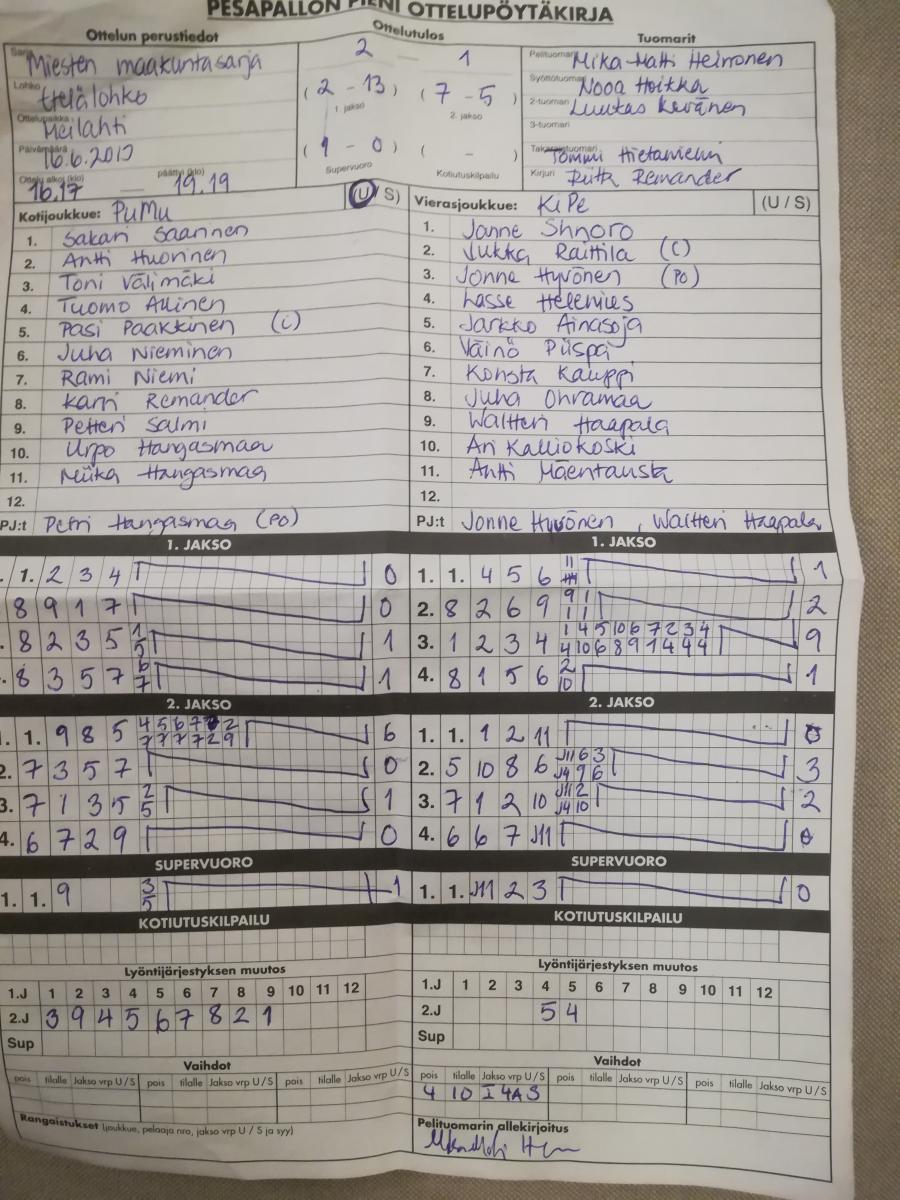 PESÄPALLON PIENI OTTELUPÖYTÄKIRJA
Ottelun perustiedot
Sarja Miesten maakuntasarja
Lohko Etelälohko
Ottelupaikka Meilahti
Päivämäärä 16.6.2017
Ottelu alkoi (klo) 16.17 — päättyi (klo) 19.19
Ottelutulos
2 — 1
( 2 - 13 ) ( 7 - 5 )
1. jakso 2. jakso
( 1 - 0 ) ( - )
Supervuoro Kotiutuskilpailu
Tuomarit
Pelituomari Mika-Matti Heinonen
Syöttötuomari Nooa Hoikka
2-tuomari
3-tuomari
Takarajatuomari Tommi
Kirjuri Riitta Remander
Kotijoukkue: PuMu (U / S)
1. Sakari Saarinen
2. Antti Huovinen
3. Toni Välimäki
4. Tuomo
5. Pasi Paakkinen (C)
6. Juha Nieminen
7. Rami Niemi
8. Karri Remander
9. Petteri Salmi
10. Urpo Hangasmaa
11. Miika Hangasmaa
12.
PJ:t Petri Hangasmaa (PO)
Vierasjoukkue: KiPe (U / S)
1. Janne
2. Jukka Raittila (C)
3. Jonne Hyvönen (PO)
4. Lasse Helenius
5. Jarkko Ainasoja
6. Väinö Piispa
7. Konsta Kauppi
8. Juha Ohramaa
9. Waltteri Haapala
10. Ari Kalliokoski
11. Antti Mäentausta
12.
PJ:t Jonne Hyvönen, Waltteri Haapala
1. JAKSO
1. 2 3 4 0
8 9 1 7 0
8 2 3 5 1 5 1
8 3 5 7 6 7 1
1. JAKSO
1. 1. 4 5 6 11 1
2. 8 2 6 9 9 1 1 1 2
3. 1 2 3 4 1 4 5 10 6 7 2 3 4 9
4 10 6 8 9 1 4 4 4
4. 8 1 5 6 2 10 1
2. JAKSO
1. 1. 9 8 5 4 5 6 7 2 6
7 7 7 7 2 9
2. 7 3 5 7 0
3. 7 1 3 5 2 5 1
4. 6 7 2 9 0
2. JAKSO
1. 1. 1 2 11 0
2. 5 10 8 6 J11 6 3 3
J4 9 6
3. 7 1 2 10 J11 2 2
J4 10
4. 6 6 7 J11 0
SUPERVUORO
1. 1. 9 3 5 1
SUPERVUORO
1. 1. J11 2 3 0
KOTIUTUSKILPAILU
KOTIUTUSKILPAILU
Lyöntijärjestyksen muutos
1.J 1 2 3 4 5 6 7 8 9 10 11 12
2.J 3 9 4 5 6 7 8 2 1
Sup
Lyöntijärjestyksen muutos
1.J 1 2 3 4 5 6 7 8 9 10 11 12
2.J 5 4
Sup
Vaihdot
pois tilalle Jakso vrp U / S pois tilalle Jakso vrp U / S pois tilalle Jakso vrp U / S
Vaihdot
pois tilalle Jakso vrp U / S pois tilalle Jakso vrp U / S pois tilalle Jakso vrp U / S
4 10 I 4A S
Rangaistukset (joukkue, pelaaja nro, jakso vrp U / S ja syy)
Pelituomarin allekirjoitus